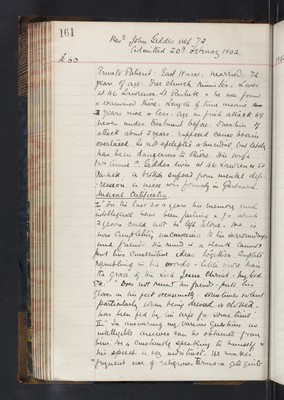 161
Revd John Geddes aet 72
Admitted 20th February 1902
£60
Private Patient: East House: married: 72
years of age: Free Church Minister: Lives
at 46 Lawrence St Partick & he was found
& examined there. Length of time insane
3 years more or less: Age on first attack 69
never under treatment before Duration of
attack about 3 years Supposed cause brain
overtaxed. Is not epileptic or suicidal, but lately
has been dangerous to others. His wife
Mrs Annie Geddes lives at 46 Lawrence St
Partick. A brother suffered from mental dep-
ression. A niece was formerly in Gartnavel
Medical Certificates
I "For the last 3 or 4 years his memory and
intelligence have been failing & for about
2 years could not be left alone. He is
now completely unconscious to his surroundings
and friends. His mind is a blank cannot
put two consecutive ideas together constantly
rambling in his words - little more than
the grace of the Lord Jesus Christ - my God
&c." "Does not know his friends - puts his
gloves on his feet occasionally - sometimes violent
particularly when being dressed or clothed.
has been fed by his wife for some time"
II "In answering my various questions no
intelligible answers can be obtained from
him he is constantly speaking to himself &
his speech is very indistinct. He makes
frequent use of religious terms &